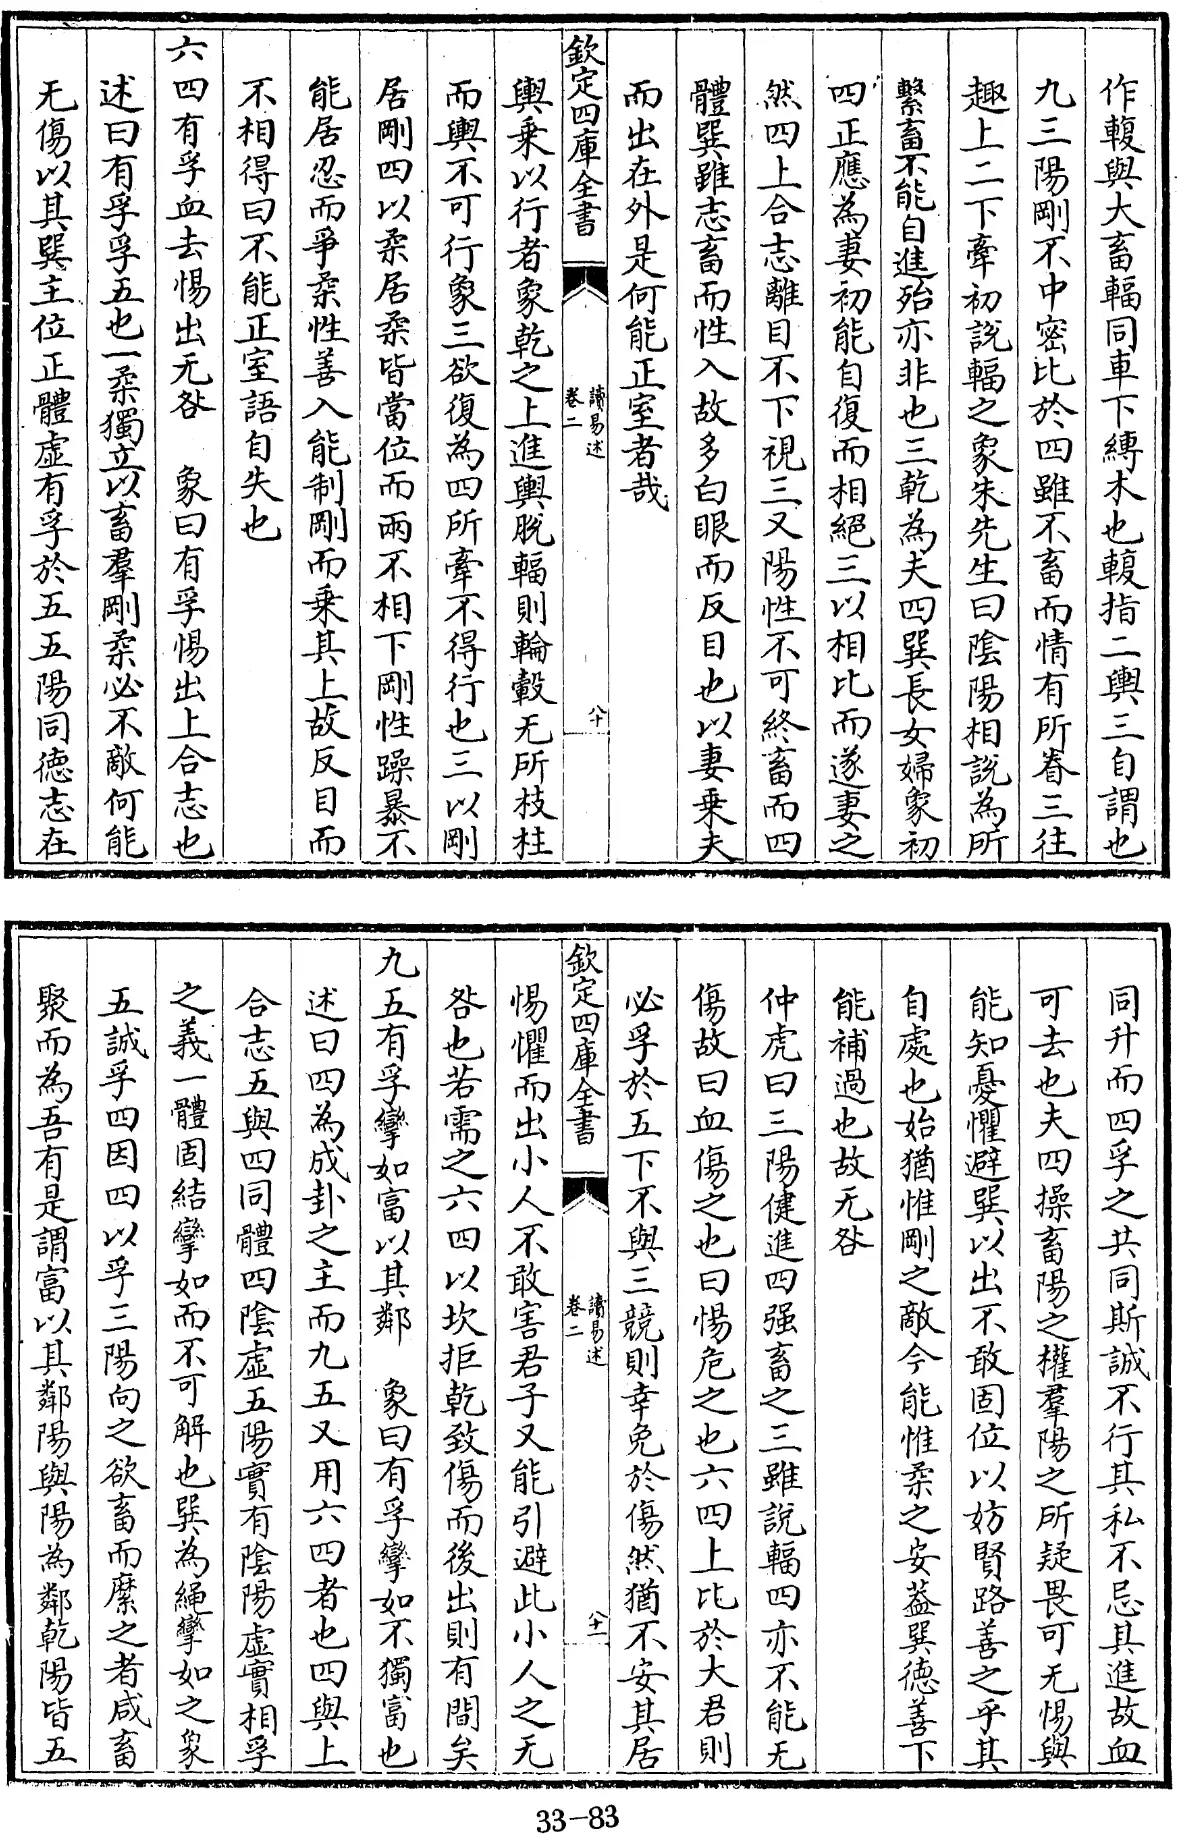 作輹與大畜輻同車下縛木也輹指二輿三自謂也
九三陽剛不中密比於四雖不畜而情有所眷三往
趣上二下牽初說輻之象朱先生曰陰陽相說為所
繫畜不能自進殆亦非也三乾為夫四巽長女婦象初
四正應為妻初能自復而相絕三以相比而遂妻之
然四上合志離目不下視三又陽性不可終畜而四
體巽雖志畜而性入故多白眼而反目也以妻乗夫
而出在外是何能正室者哉
欽定四庫全書
讀易述
卷二
八十
輿乗以行者象乾之上進輿脫輻則輪轂无所枝柱
而輿不可行象三欲復為四所牽不得行也三以剛
居剛四以柔居柔皆當位而兩不相下剛性躁暴不
能居忍而爭柔性善入能制剛而乗其上故反目而
不相得曰不能正室語自失也
六四有孚血去惕出无咎　象曰有孚惕出上合志也
述曰有孚孚五也一柔獨立以畜羣剛柔必不敵何能
无傷以其巽主位正體虛有孚於五五陽同徳志在
同升而四孚之共同斯誠不行其私不忌其進故血
可去也夫四操畜陽之權羣陽之所疑畏可无惕與
能知憂懼避巽以出不敢固位以妨賢路善之乎其
自處也始猶惟剛之敵今能惟柔之安葢巽徳善下
能補過也故无咎
仲虎曰三陽健進四强畜之三雖說輻四亦不能无
傷故曰血傷之也曰惕危之也六四上比於大君則
必孚於五下不與三競則幸免於傷然猶不安其居
欽定四庫全書
讀易述
卷二
八十一
惕懼而出小人不敢害君子又能引避此小人之无
咎也若需之六四以坎拒乾致傷而後出則有間矣
九五有孚攣如富以其鄰　象曰有孚攣如不獨富也
述曰四為成卦之主而九五又用六四者也四與上
合志五與四同體四陰虛五陽實有陰陽虛實相孚
之義一體固結攣如而不可解也巽為繩攣如之象
五誠孚四因四以孚三陽向之欲畜而縻之者咸畜
聚而為吾有是謂富以其鄰陽與陽為鄰乾陽皆五
33-83